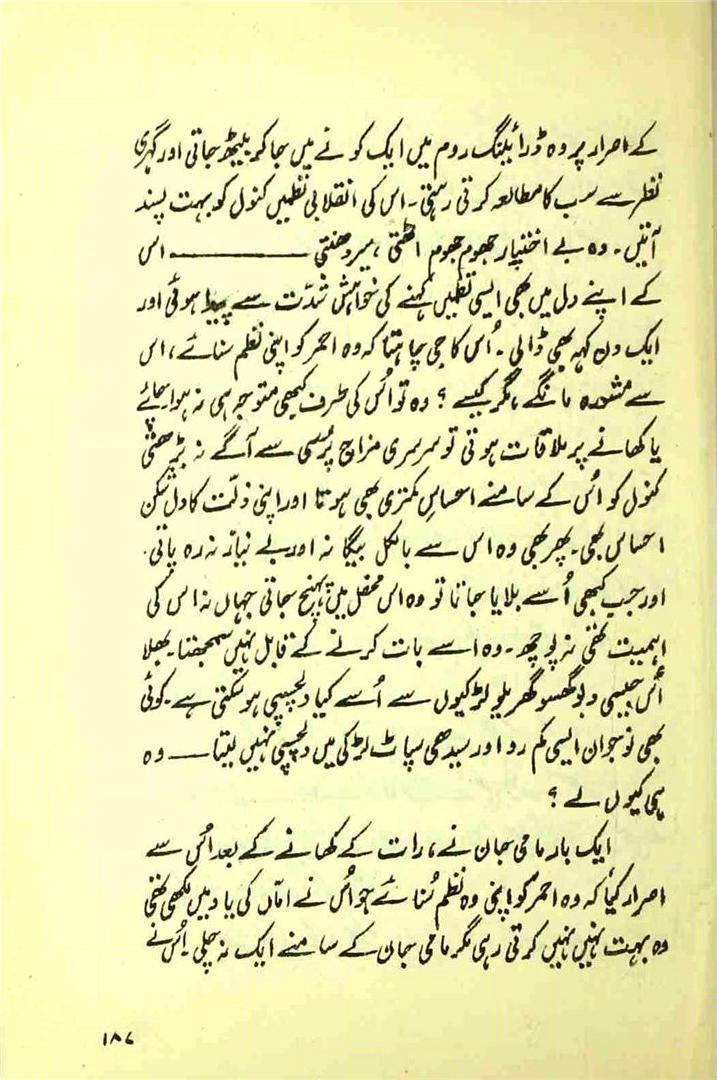 کے اصرار پر وہ ڈرائینگ روم میں ایک کونے میں جا کر بیٹھ جاتی اور گہری
نظر سے سب کا مطالعہ کرتی رہتی۔ اس کی انقلابی نظمیں کنول کو بہت پسند
آتیں۔ وہ بے اختیار جھوم جھوم اٹھتی، سر دھنتی ——— اس
کے اپنے دل میں بھی ایسی نظمیں کہنے کی خواہش شدّت سے پیدا ہوئی اور
ایک دن کہہ بھی ڈالی۔ اُس کا جی چاہتا کہ وہ احمر کو اپنی نظم سنائے، اس
سے مشورہ مانگے، مگر کیسے؟ وہ تو اُس کی طرف کبھی متوجہ ہی نہ ہوا۔ چائے
یا کھانے پر ملاقات ہوتی تو سرسری مزاج پُرسی سے آگے نہ بڑھتی
کنول کو اُس کے سامنے احساسِ کمتری بھی ہوتا اور اپنی ذلّت کا دل شکن
احساس بھی۔ پھر بھی وہ اس سے بالکل بیگانہ اور بے نیاز نہ رہ پاتی۔
اور جب کبھی اُسے بلایا جاتا تو وہ اس محفل میں پہنچ جاتی جہاں نہ اس کی
اہمیت تھی نہ پوچھ۔ وہ اسے بات کرنے کے قابل نہیں سمجھتا۔ بھلا
اُس جیسی دبو گھسو گھریلو لڑکیوں سے اُسے کیا دلچسپی ہو سکتی ہے۔ کوئی
بھی نوجوان ایسی کم رو اور سیدھی سپاٹ لڑکی میں دلچسپی نہیں لیتا — وہ
ہی کیوں لے؟
ایک بار مامی جان نے، رات کے کھانے کے بعد اُس سے
اصرار کیا کہ وہ احمر کو اپنی وہ نظم سُنائے جو اُس نے امّاں کی یاد میں لکھی تھی
وہ بہت نہیں نہیں کرتی رہی مگر مامی جان کے سامنے ایک نہ چلی۔ اُس نے
۱۸۷